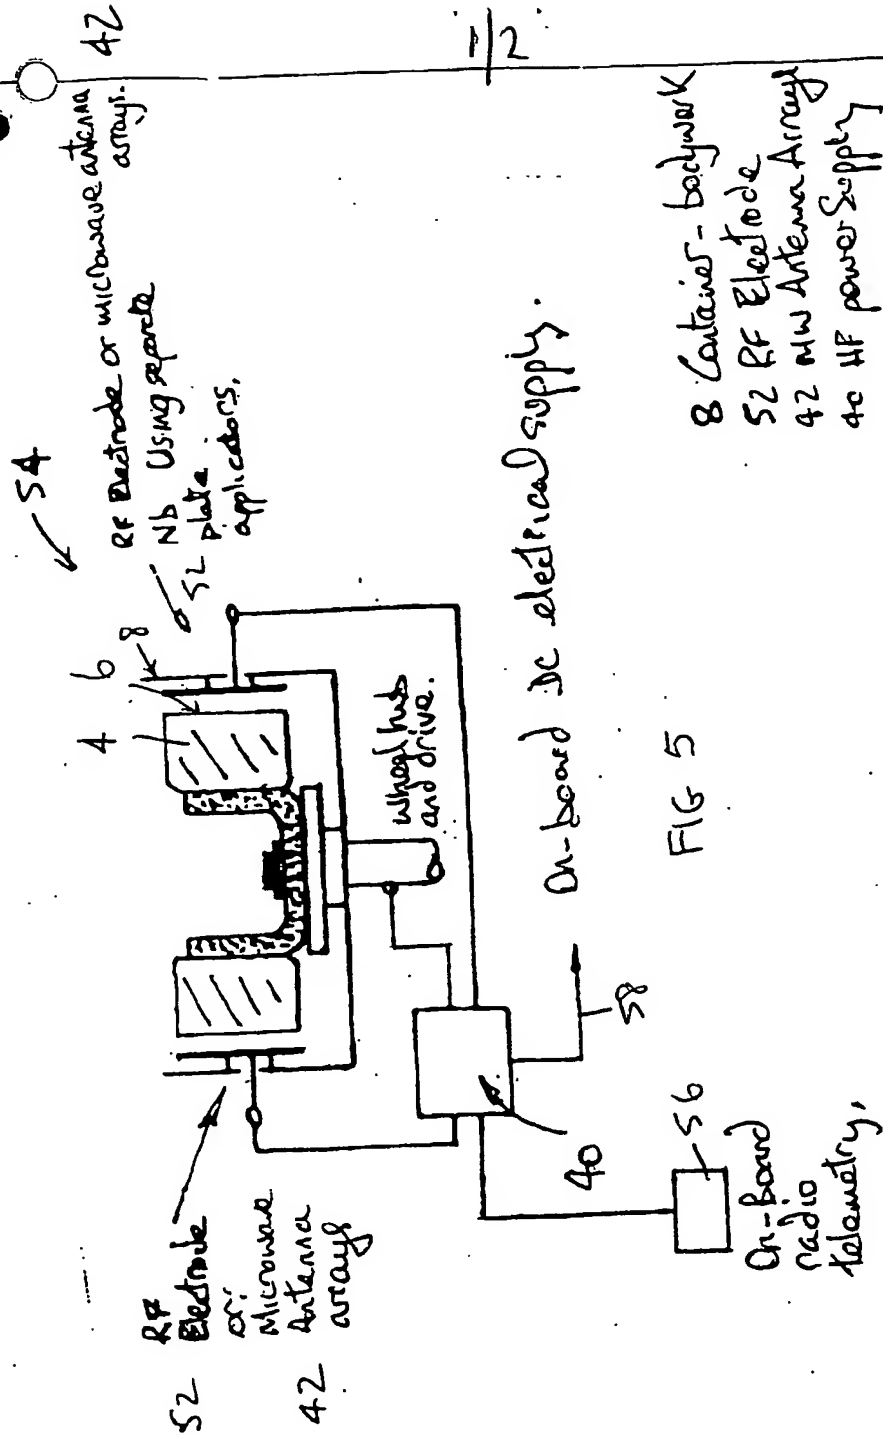 1/2
54
RF Electrode or microwave antenna
arrays.
42
Nb Using separate
52 plate
applicators.
4
6
8
wheel hub
and drive.
52
RF
Electrode
or
Microwave
Antenna
arrays
42
40
58
On-board DC electrical supply.
56
On-Board
radio
telemetry,
FIG 5
8 Container - bodywork
52 RF Electrode
42 MW Antenna Arrays
40 HF power Supply